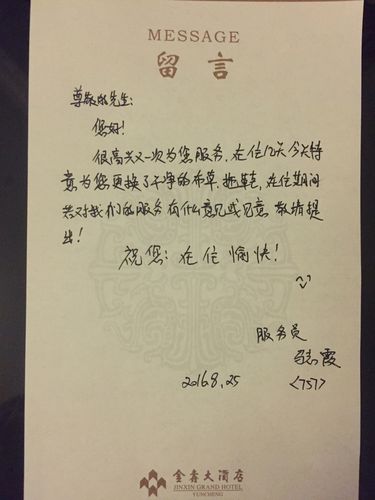 MESSAGE
留言
尊敬的先生:
您好!
很高兴又一次为您服务,在住12天今天特
意为您更换了干净的布草,拖鞋,在住期间
若对我们的服务有什么意见或见意 敬请提
出!
祝您:在住愉快!
服务员
马志霞
2016.8.25 <757>
金鑫大酒店
JINXIN GRAND HOTEL
YUNCHENG